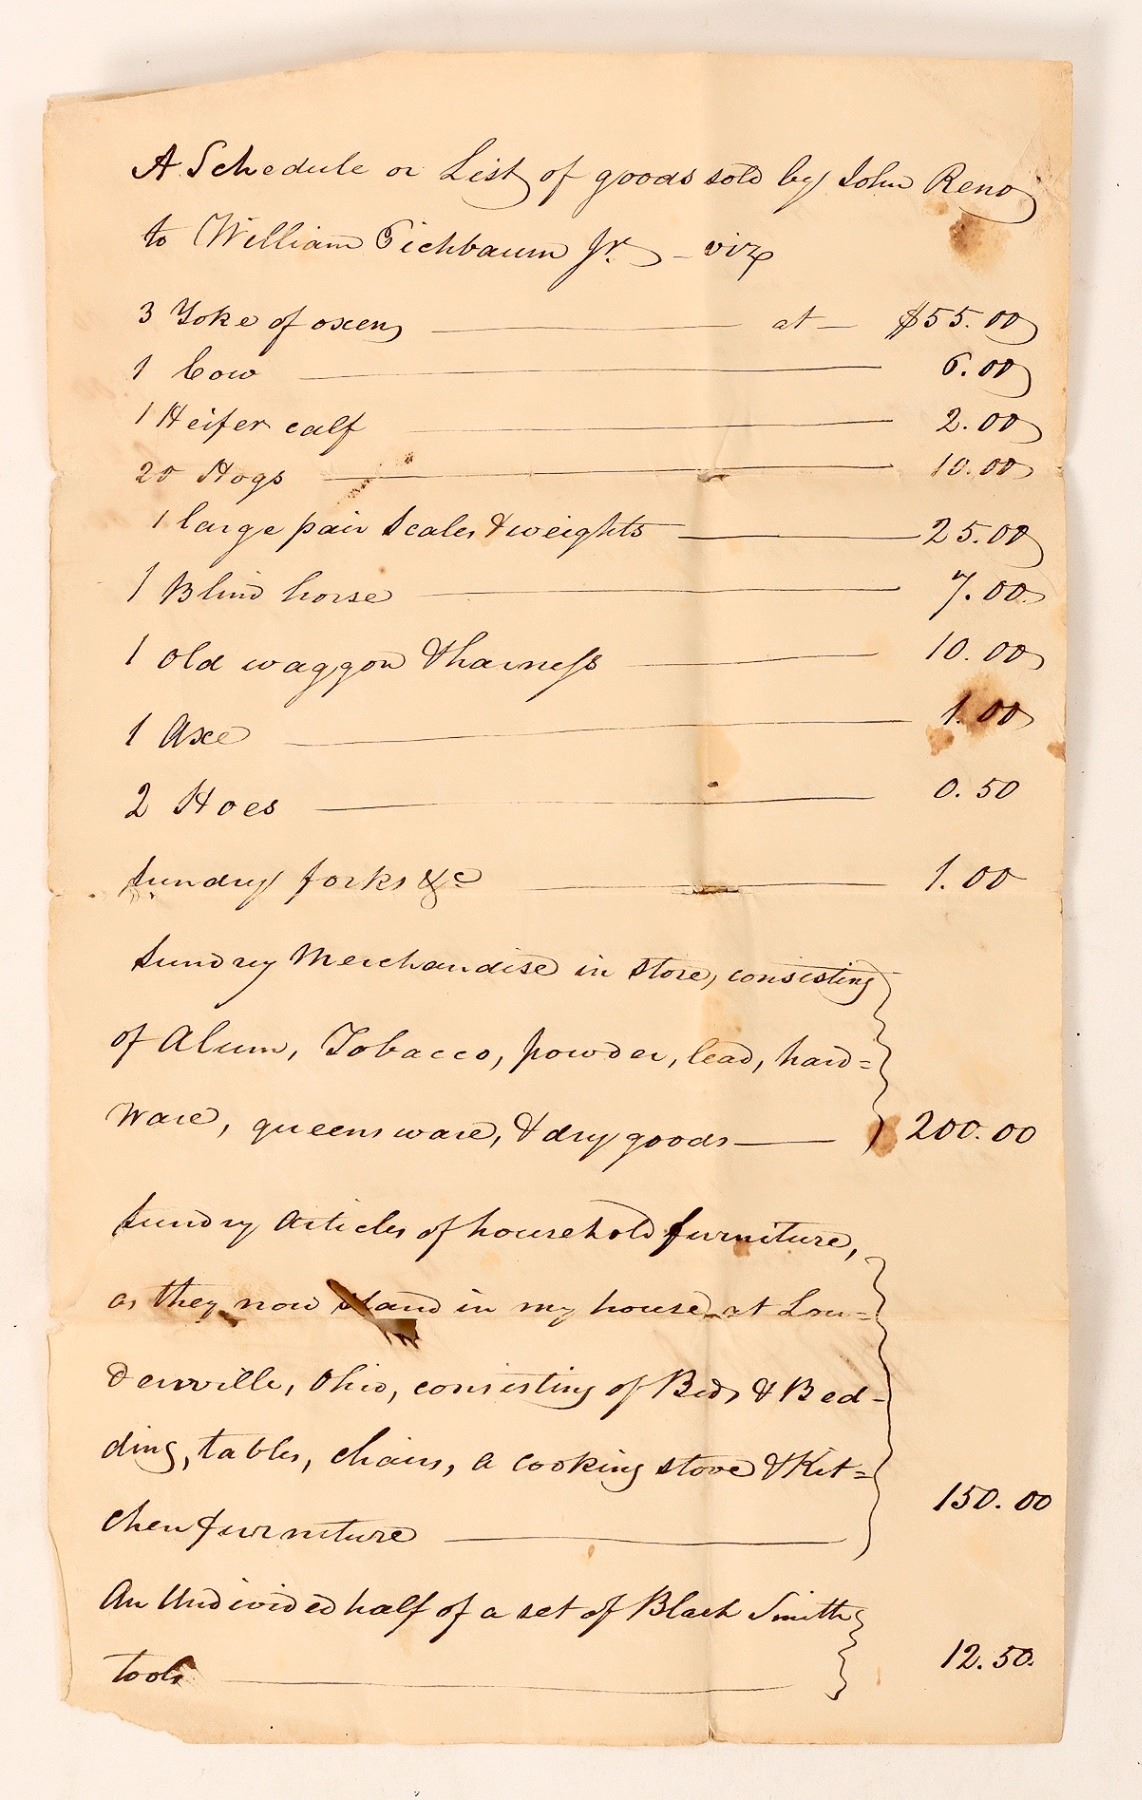 A Schedule or List of goods sold by John Reno
to William Eichbaum Jr. - viz
3 Yoke of oxen — at — $55.00
1 Cow — 6.00
1 Heifer calf — 2.00
20 Hogs — 10.00
1 large pair Scales & weights — 25.00
1 Blind horse — 7.00
1 old waggon & harness — 10.00
1 Axe — 1.00
2 Hoes — 0.50
Sundry forks &c — 1.00
Sundry Merchandise in Store, consisting
of Alum, Tobacco, powder, lead, hard=
ware, queensware, & dry goods — 200.00
Sundry Articles of household furniture,
as they now stand in my house at Lou=
denville, Ohio, consisting of Beds & Bed=
ding, tables, chairs, a cooking stove & Kit=
chen furniture — 150.00
An Undivided half of a set of Black Smith
tools — 12.50.